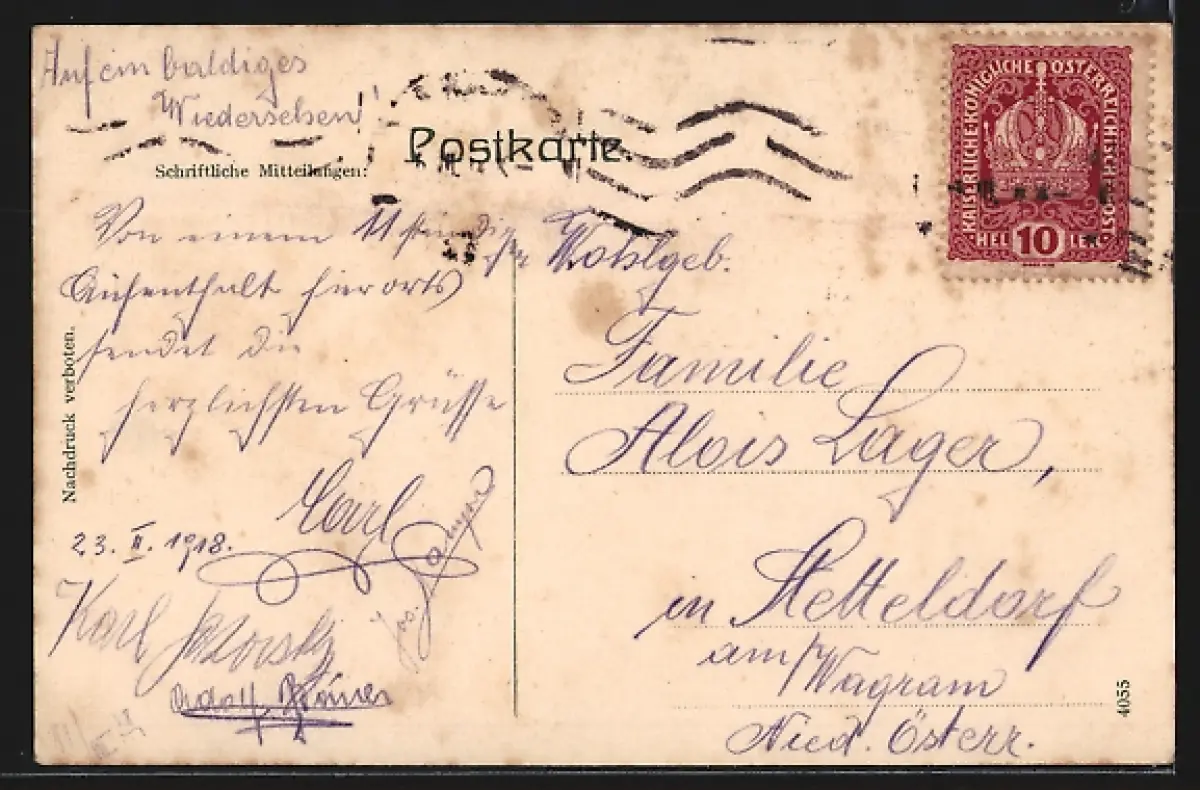 Auf ein baldiges
Wiedersehen!
Postkarte
Schriftliche Mitteilungen:
KAISERLICHE KÖNIGLICHE ÖSTERREICHISCHE POST
HELLER
10
Von einem 11 stündigen
Aufenthalt hierorts
sendet die
herzlichsten Grüsse
Carl
23. II. 1918.
Karl
Adolf
Nachdruck verboten.
Wohlgeb.
Familie
Alois Lager,
in Stetteldorf
am/Wagram
Nied. Österr.
4055